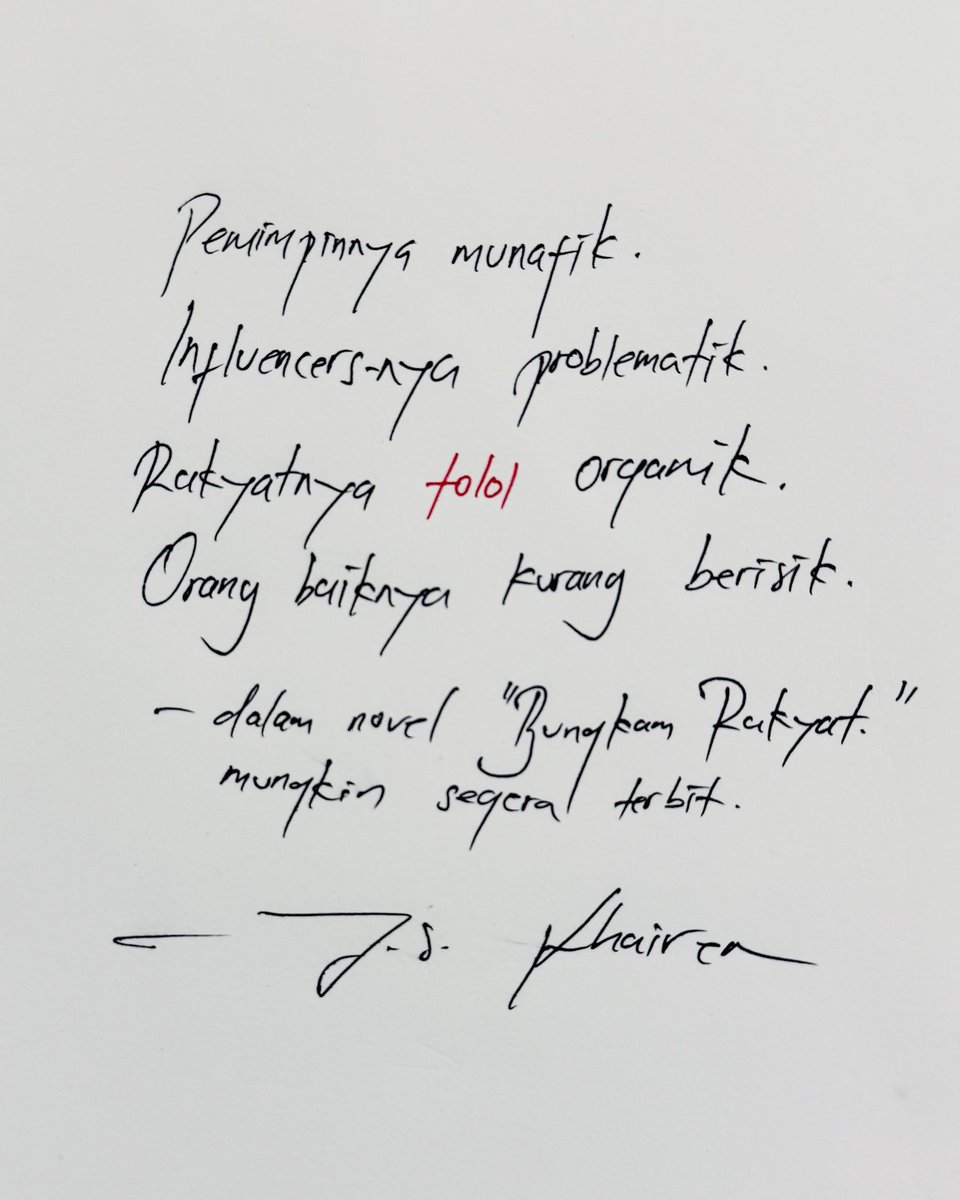 Pemimpinnya munafik.
Influencers-nya problematik.
Rakyatnya tolol organik.
Orang baiknya kurang berisik.
– dalam novel "Bungkam Rakyat."
mungkin segera terbit.
— J.S. Khairen